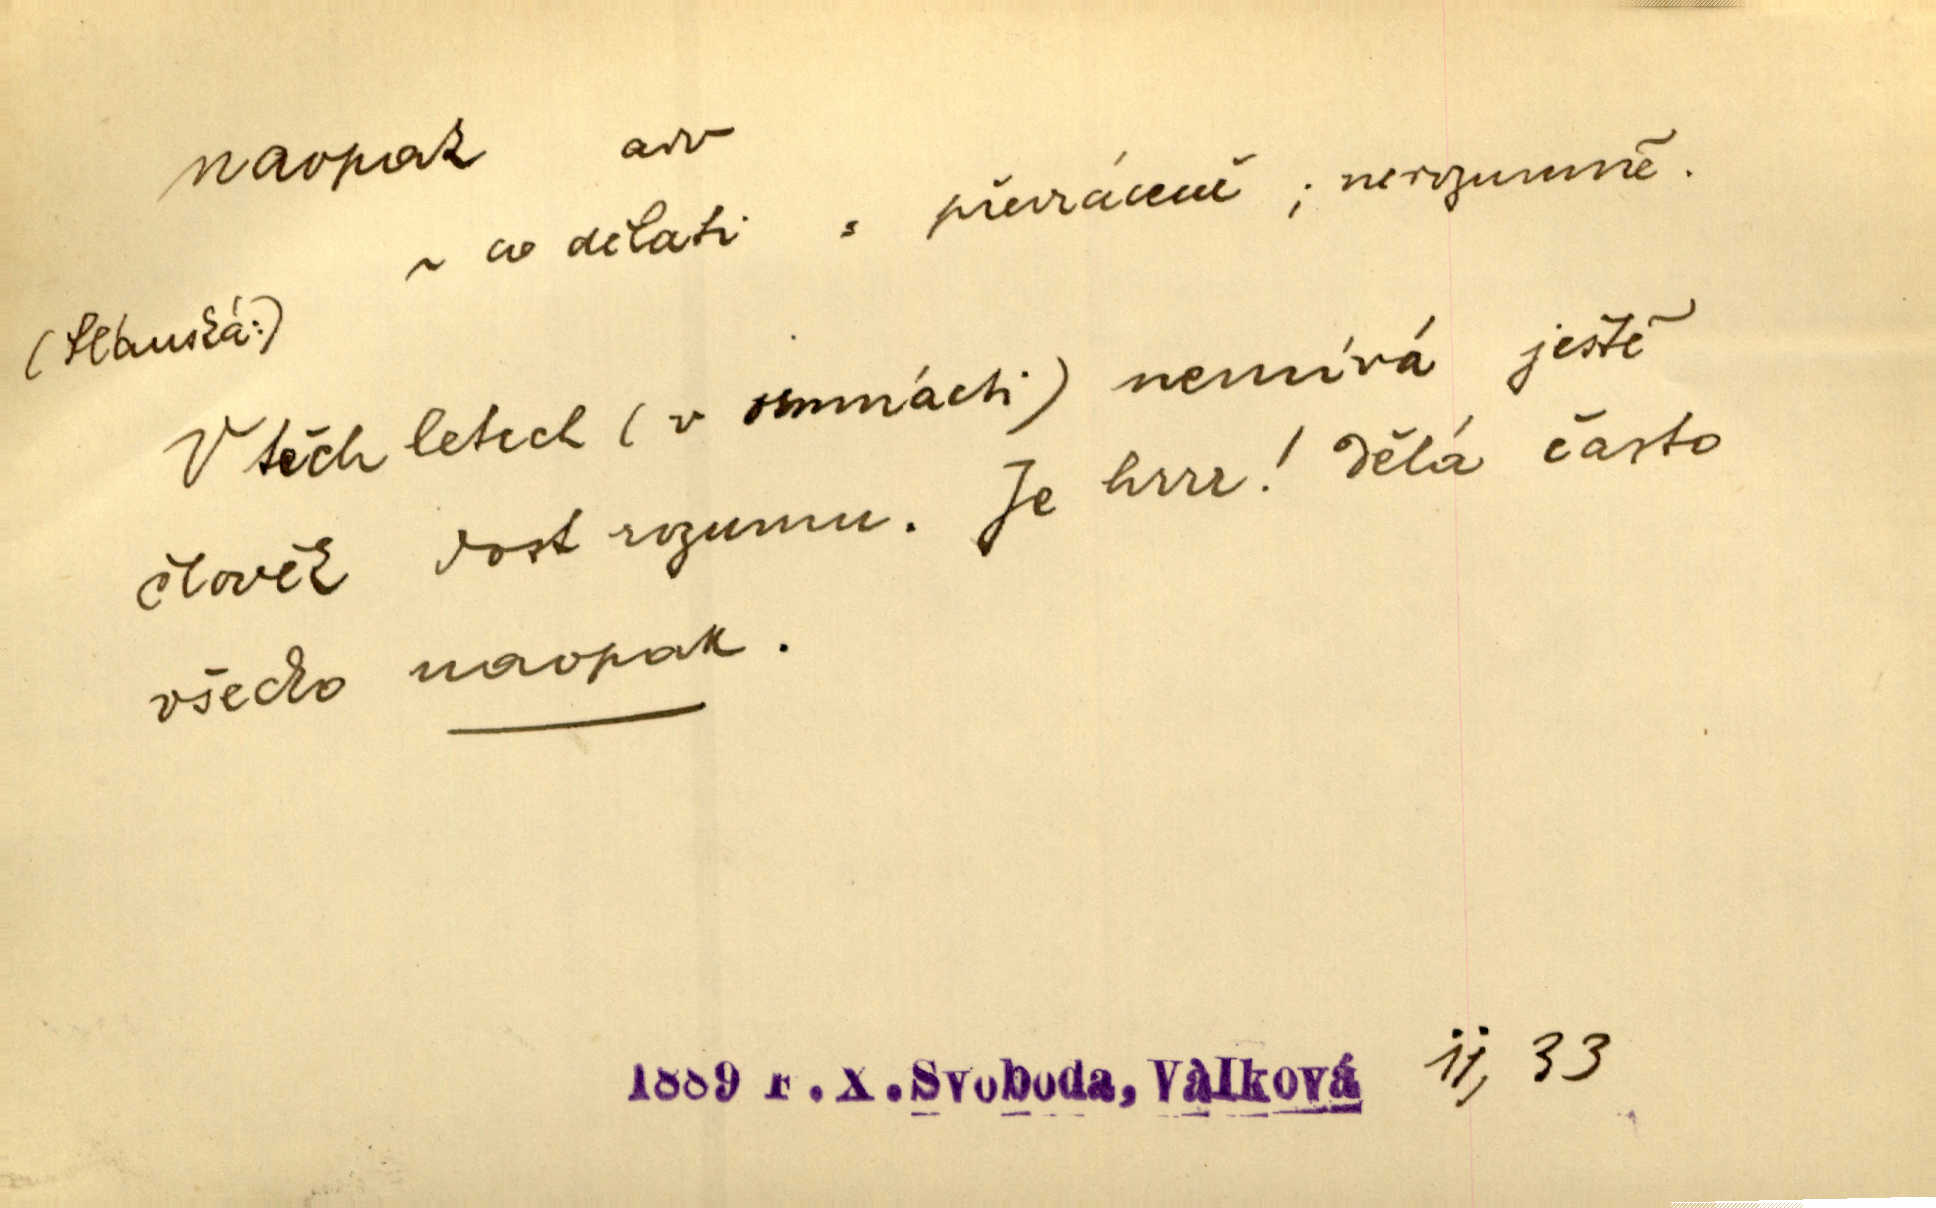 naopak adv
~ co dělati = převráceně ; nerozumně.
V těch letech (v osmnácti) nemívá ještě
člověk dost rozumu. Je hrrr! Dělá často
všecko naopak.
1889 F.X.Svoboda, Válková ij, 33